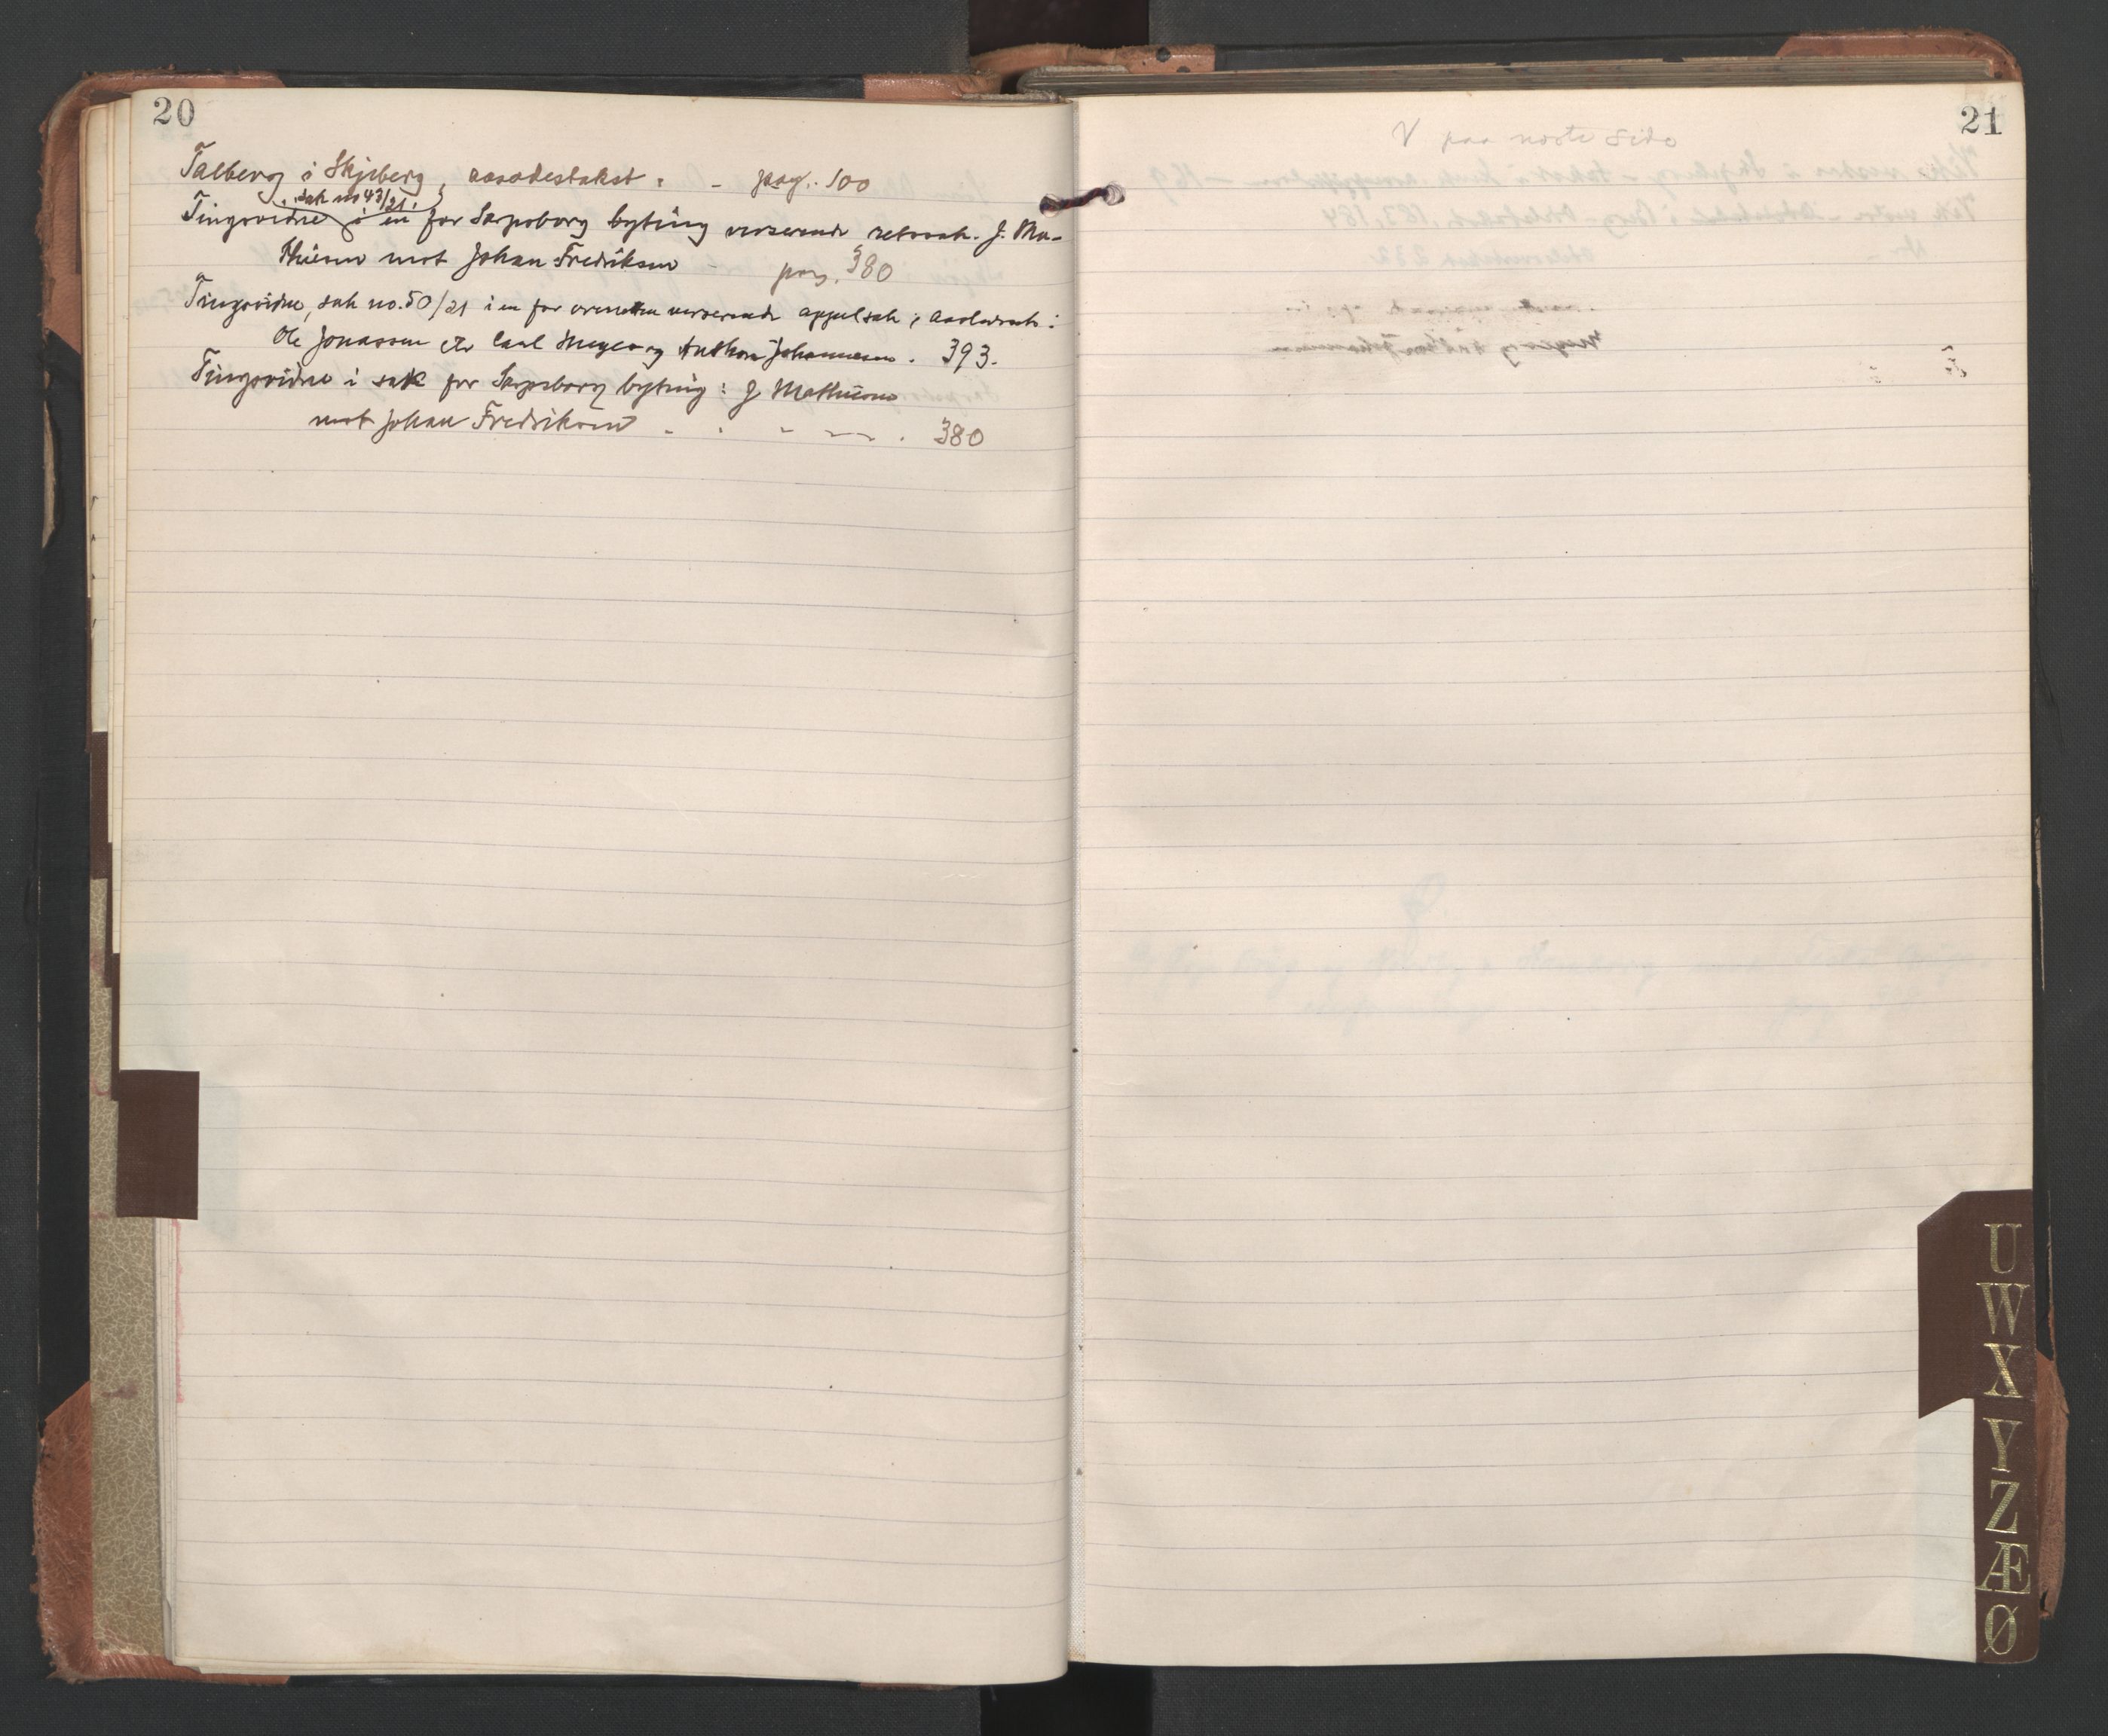 20
Talberg i Skjeberg, aasædestakst. - pag. 100
sak no 43/21.
Tingsvidne i en for Sarpsborg byting verserende retssak. J. Ma-
thiesen mot Johan Fredriksen - pag. 380
Tingsvidne, sak no. 50/21 i en for verserende appelsak, :
Ole Jonassen Carl Meyer og Anthon Johannesen. 393.
Tingsvidne i sak for Sarpsborg byting: J Mathiesen
mot Johan Fredriksen - . - - . 380
21
V paa næste side
U
W
X
Y
Z
Æ
Ø